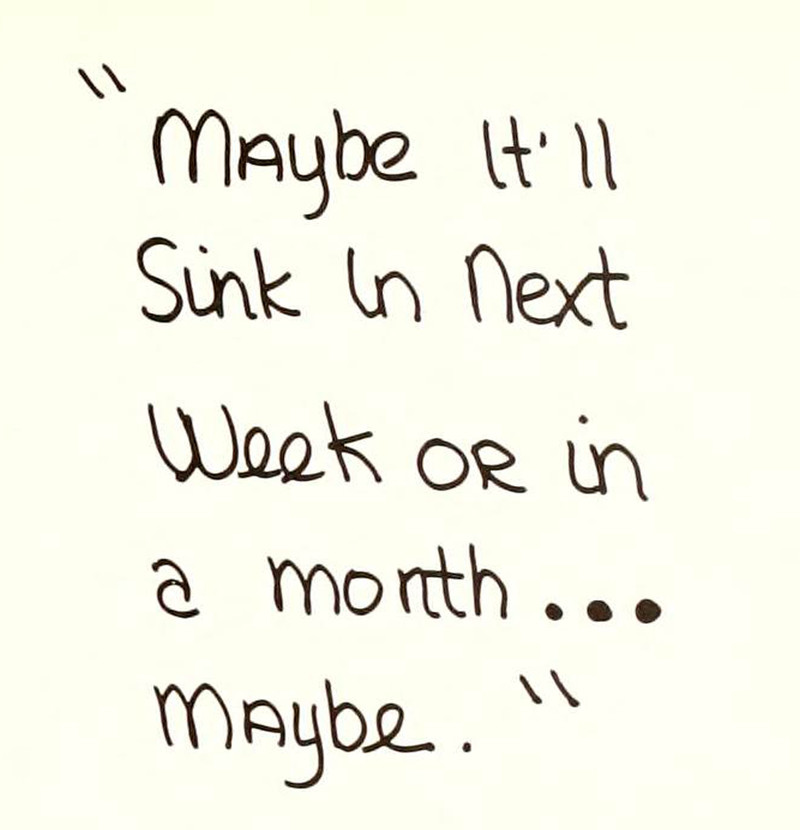 "Maybe It'll
Sink In Next
Week OR in
a month...
Maybe."